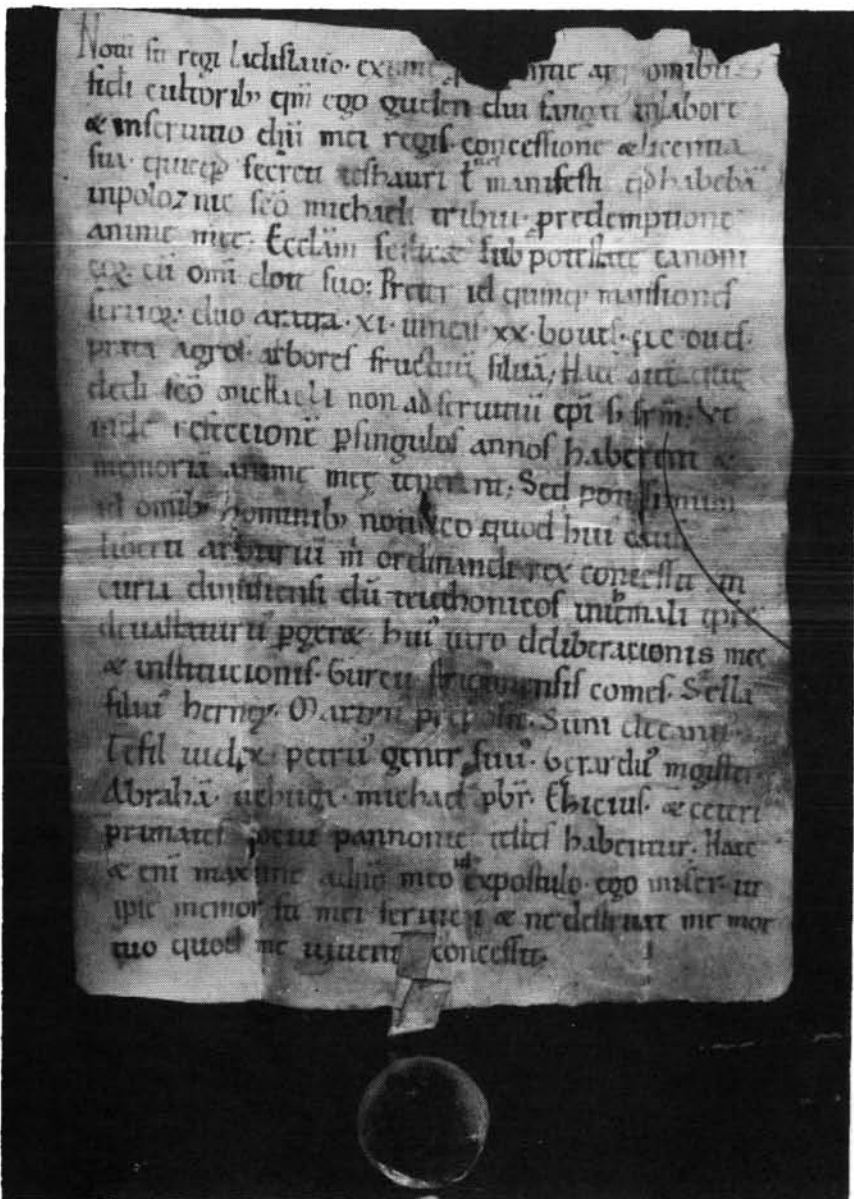 Noui sit regi ladislauo· omnibus
fidei cultorib; qm̄ ego guden diu fatigatꝰ inlabore
& inseruitio dn̄i mei regis· concessione & licentia
sua· quicq̨d secreti thesauri ł manifesti qd̄ habebā
inpoloznie sc̄o michaeli tribui· predemptione
anime mee· Eccl̄am sub potestate canoni
coꝝ· cū om̄i dote suo: Preter id quinq; mansiones
seruoꝝ· duo aratra· xi· uineas· xx· boues· oues·
prata agros· arbores fructuū siluā; Hec autē
dedi sc̄o michaeli non ad seruitiū ep̄i s; fr̄m· Vt
inde refeccionē ꝑsingulos annos haberent &
memoriā anime meę tenerent; Sed potissimum
id omib; hominib; notifico quod huiꝰ
liberū arbitriū m̄ ordinandi rex concessit in
curia dum teuthonicos
deuastaturꝰ ꝑgeret· huiꝰ uero deliberationis mee
& institucionis· Gureu strigoniensis comes· Stella
filiuꝰ herney· Martyn preposit· Suni decanus·
Tesil iudex· petruꝰ gener suuꝰ· berarduꝰ magister·
Abrahā· michael pbr̄· Ehicius· & ceteri
primates pannonie testes habentur· Hanc
& enī maxime adn̄o meo id expostulo· ego miser· ut
ipse memor sit mei seruicii & ne destruat me mor
tuo quod me uiuente concessit·